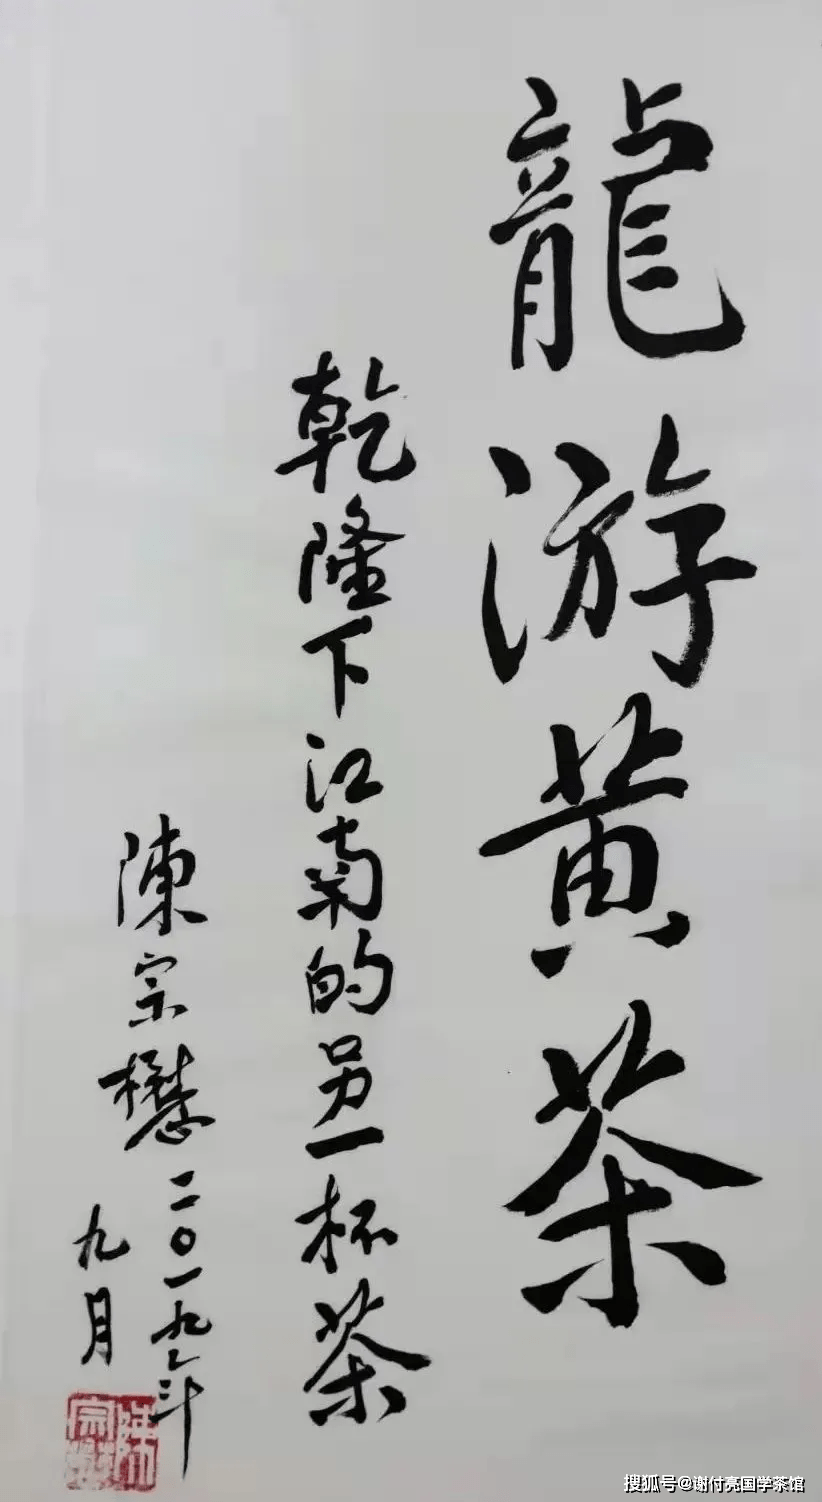 龍游黄茶
乾隆下江南的另一杯茶
陳宗懋二〇一九年
九月
陳宗懋
搜狐号@谢付亮国学茶馆